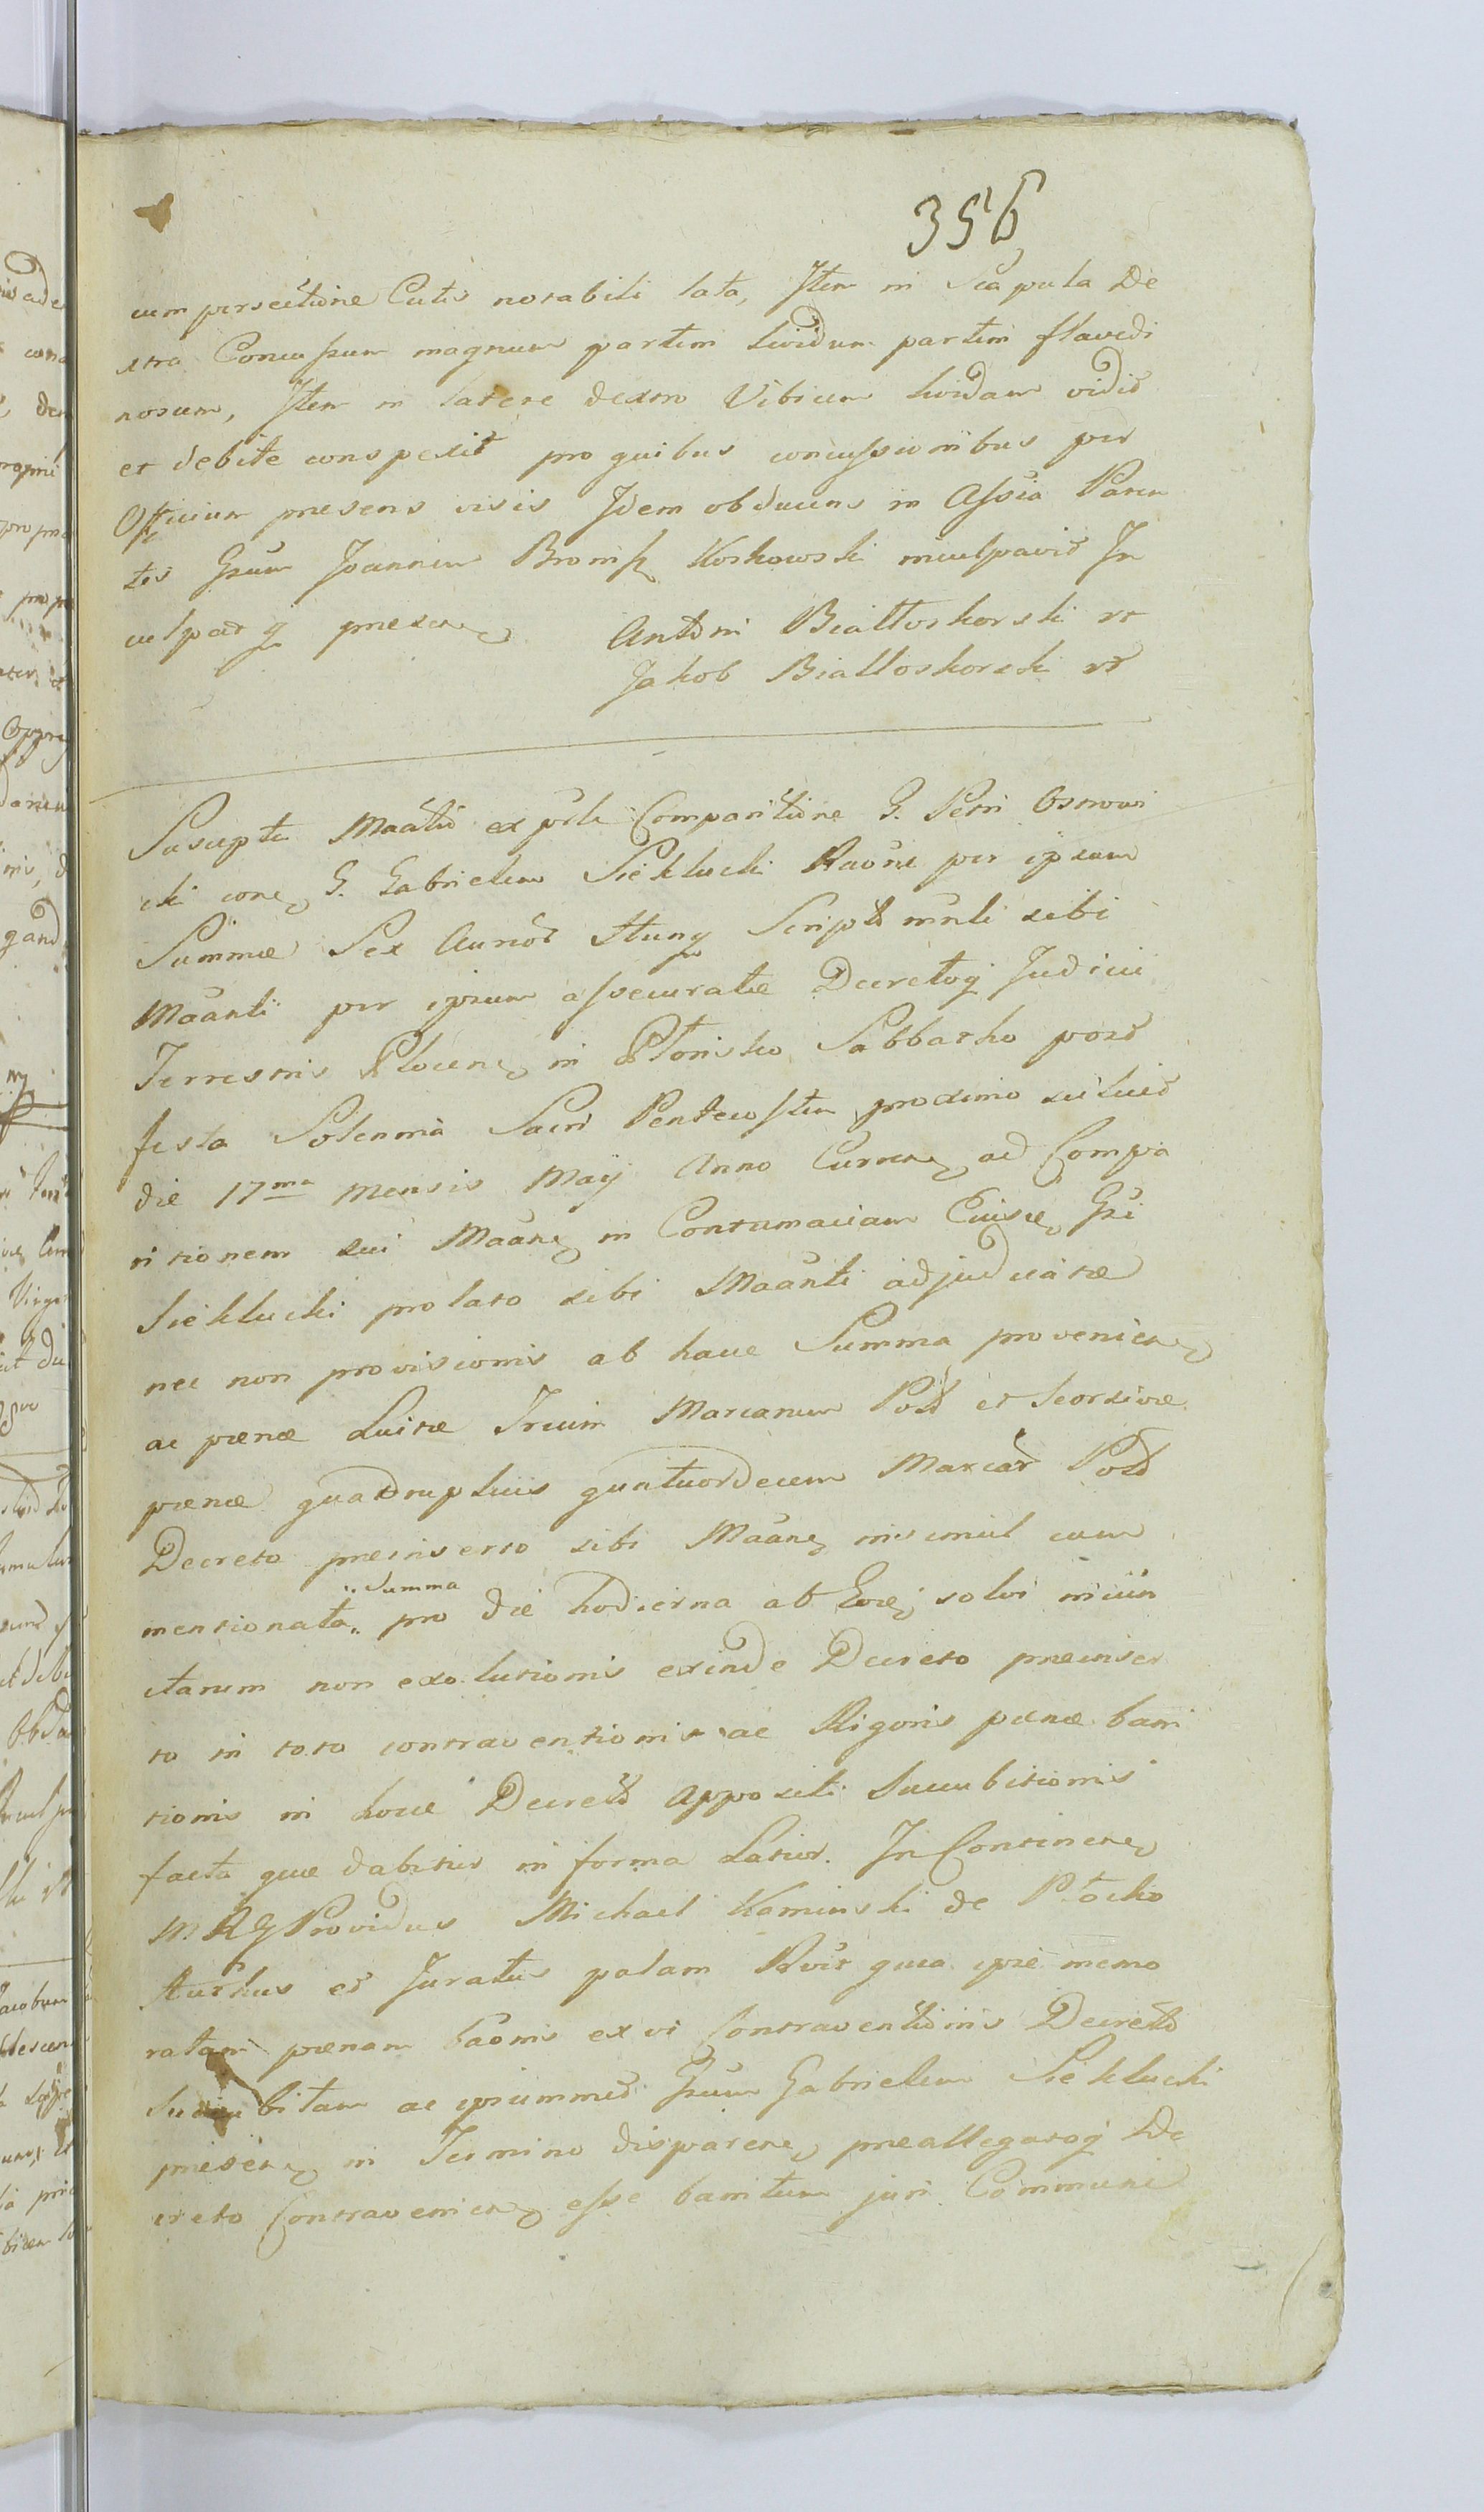 356
cum persectione Cutis notabili lata, Item in Scapula De
xtra Concussum magnum partim lividum partim flavedi
nosum, Item in latere dextro Vibicem lividam vidit
et debite conspexit pro quibus concussionibus per
Officium presens visis Idem obducens in Assia Paren
tis Gsum Joannem Bronisz Koskowski inculpavit In
culpatq presen
Antoni Białłoskorski
Jakob Białloskorski
Suscepta Maatio ex prli Comparitione G. Petri Osnowi
cki con G. Gabrielem Sieklucki Raone per ipsum
Summæ Sex Aureor Hung Scripto mnli sibi
Maanti per ipsum assecuratæ Decretoq Judicii
Terrestris Plocen in Płonsko Sabbatho post
festa Solennia Sacri Pentecosten proximo scilicet
die 17ma Mensis Maÿ Anno Curren ad Compa
ritionem sui Maan in Contumaciam Ejusd Gsi
Sieklucki prolato sibi Maanti adjudicatæ
nec non provisionis ab hacce Summa provenien
ac pœnæ Luitæ Trium Marcarum Pold et seorsivæ
pœnæ quadrupluis quatuordecem Marcar Pold
Decreto preinserto sibi Maan insimul cum
mentionata „Summa„ pro die hodierna ab Eod solvi injun
ctarum non exolutionis exinde Decreto preinser
to in toto contraventionis ac Rigoris pœnæ bani
tionis in hocce Decreto appositi Succubitionis
facta quæ dabitur in forma Latior. In Continen
M. RG Providus Michael Kaminski de Płocko
Aurhus et Juratus palam Rvit quia ipse memo
ratam pœnam baonis ex vi Contraventionis Decreto
Succubitam ac ipsummet Gsum Gabrielem Sieklucki
presen in Termino disparen preallegatoq De
creto Contravenien esse banitum juri Communi